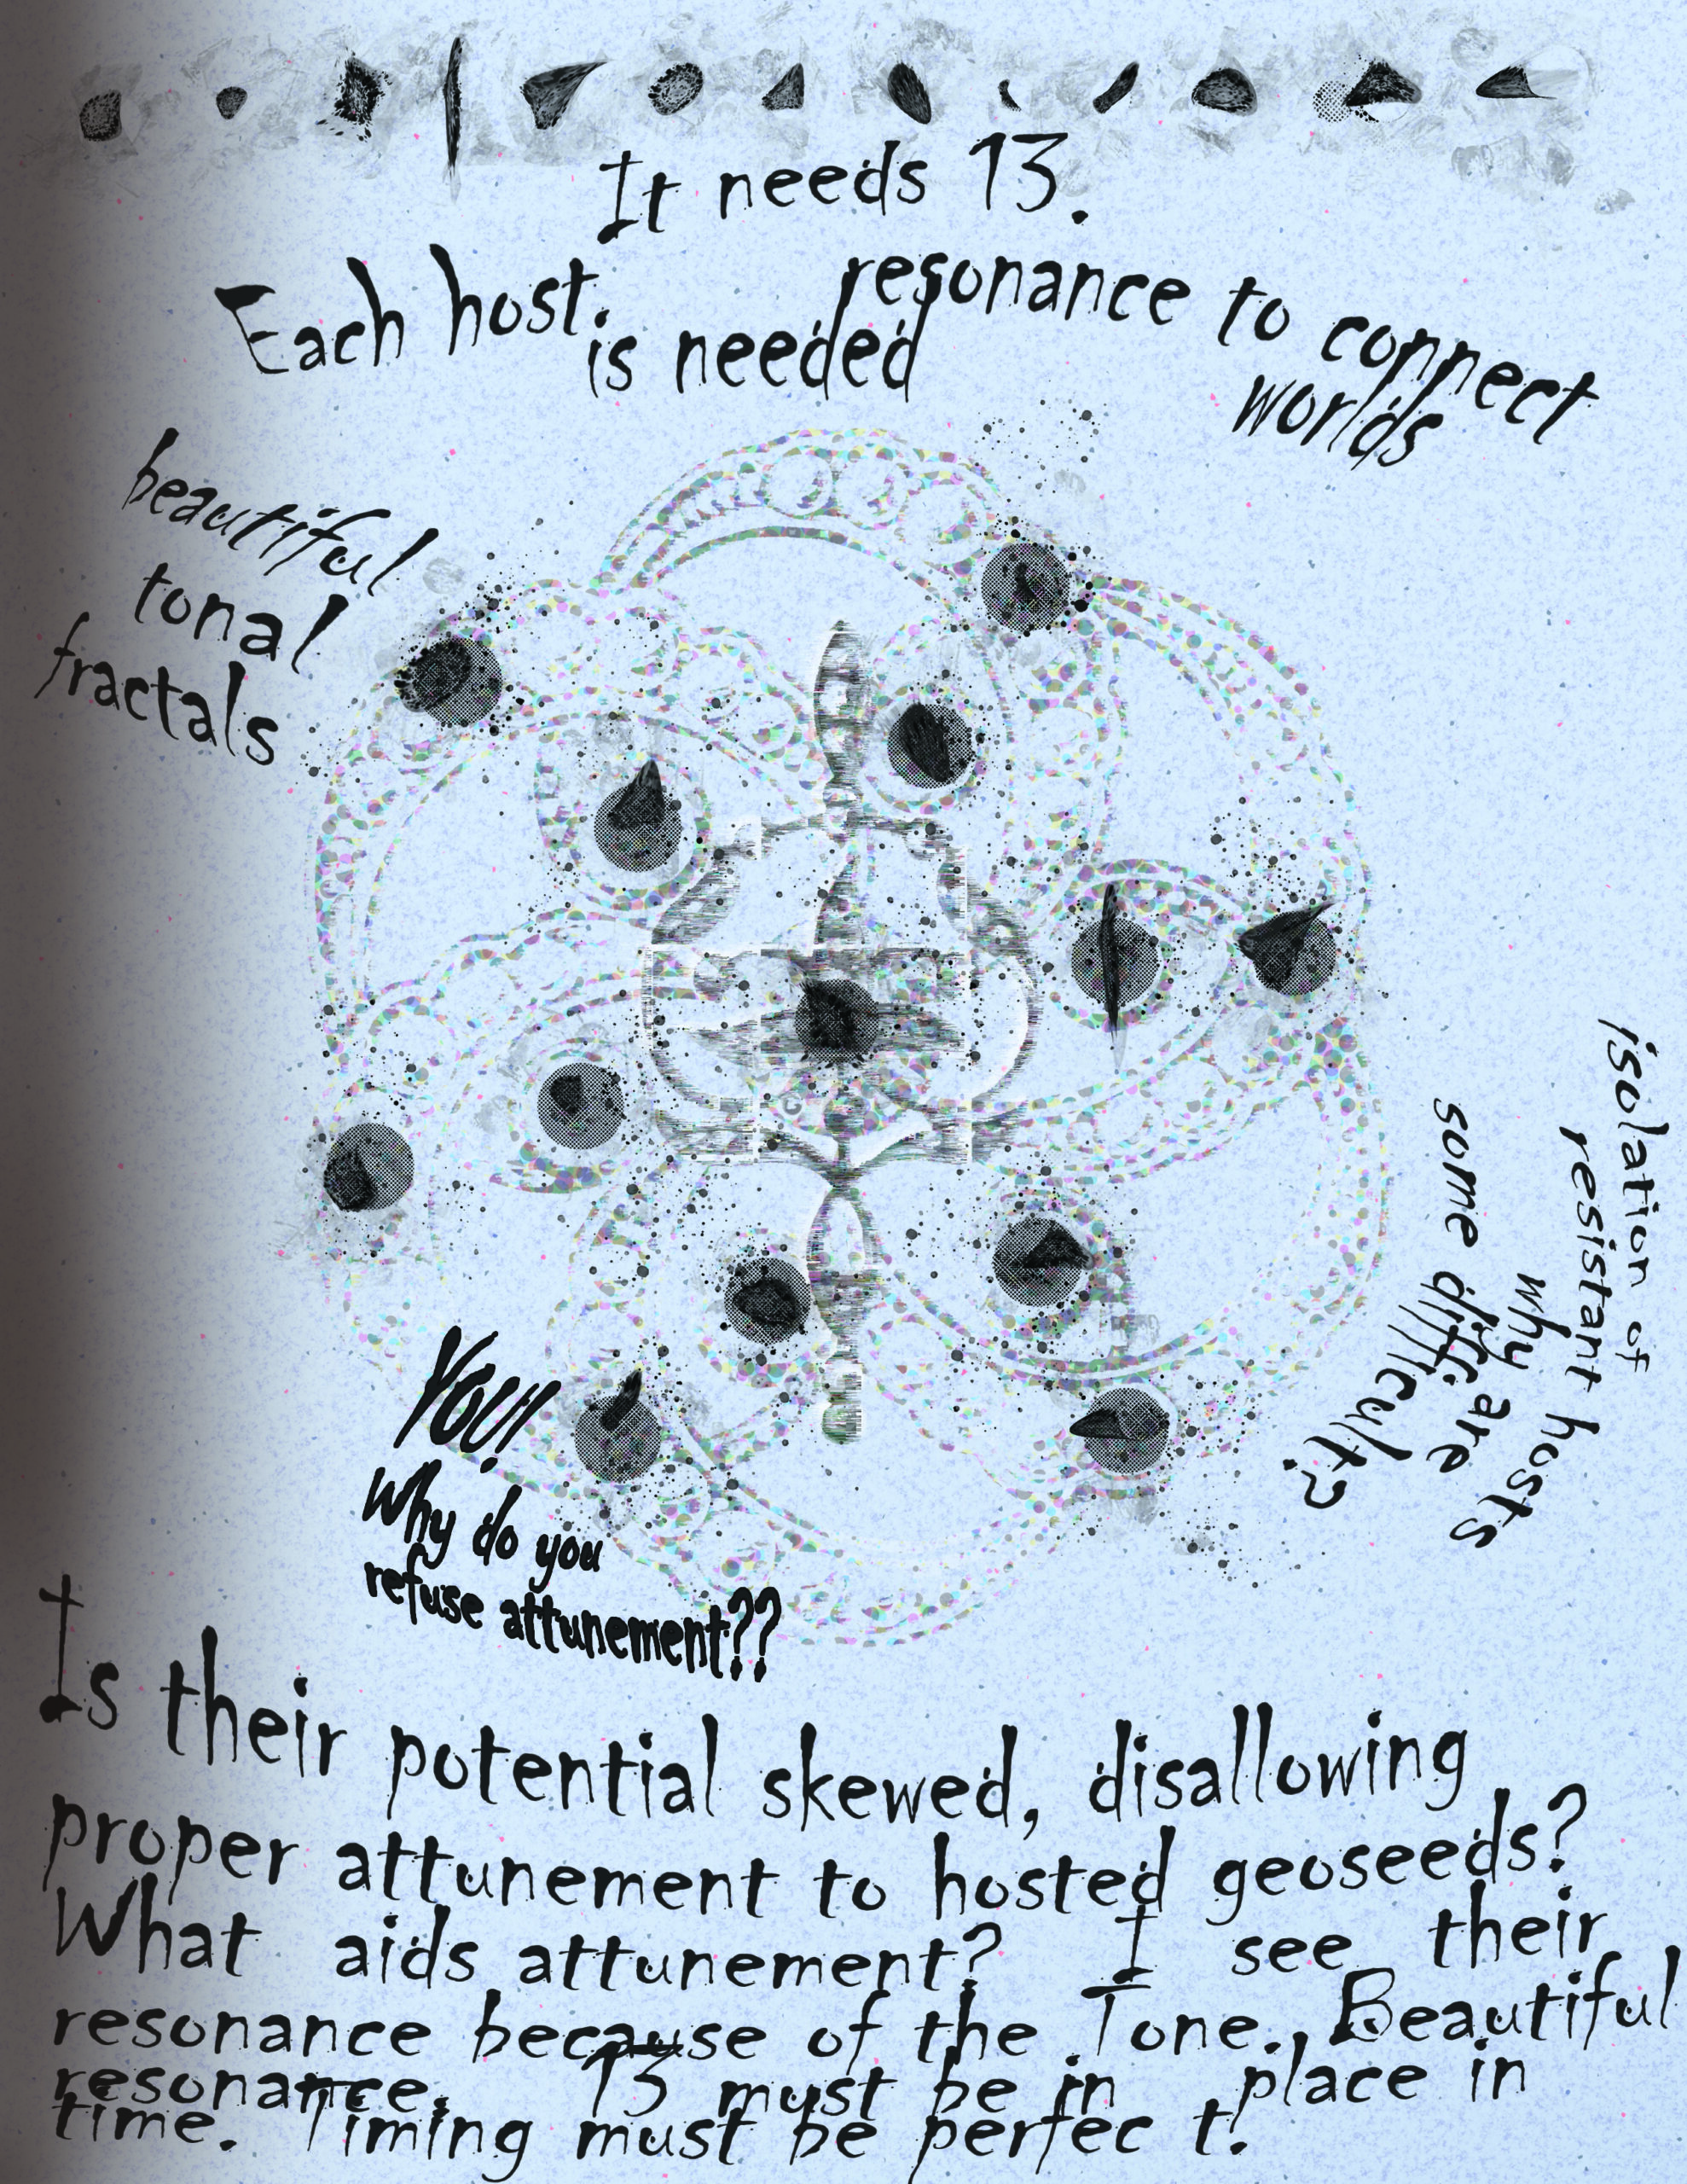 It needs 13.
Each host is needed
resonance to connect
worlds
beautiful
tonal
fractals
isolation of
resistant hosts
why are
some difficult?
YOU!
Why do you
refuse attunement??
Is their potential skewed, disallowing
proper attunement to hosted geoseeds?
What aids attunement? I see their
resonance because of the Tone. Beautiful
resonance. 13 must be in place in
time. Timing must be perfect!